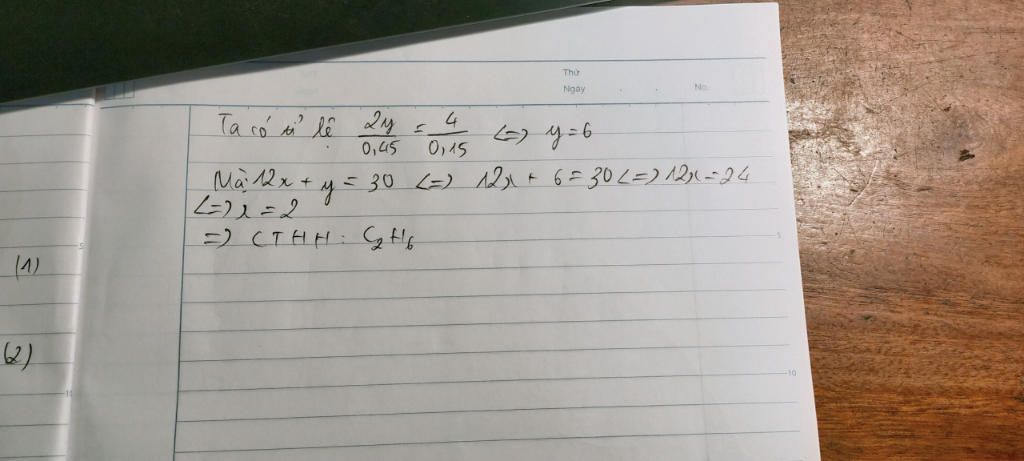 Thứ
Ngày . . No.
Ta có tỉ lệ 2y/0,45 = 4/0,15 <=> y=6
Mà 12x + y = 30 <=> 12x + 6 = 30 <=> 12x = 24
<=> x = 2
=> CTHH : C₂H₆
5
5
(1)
(2)
10
10